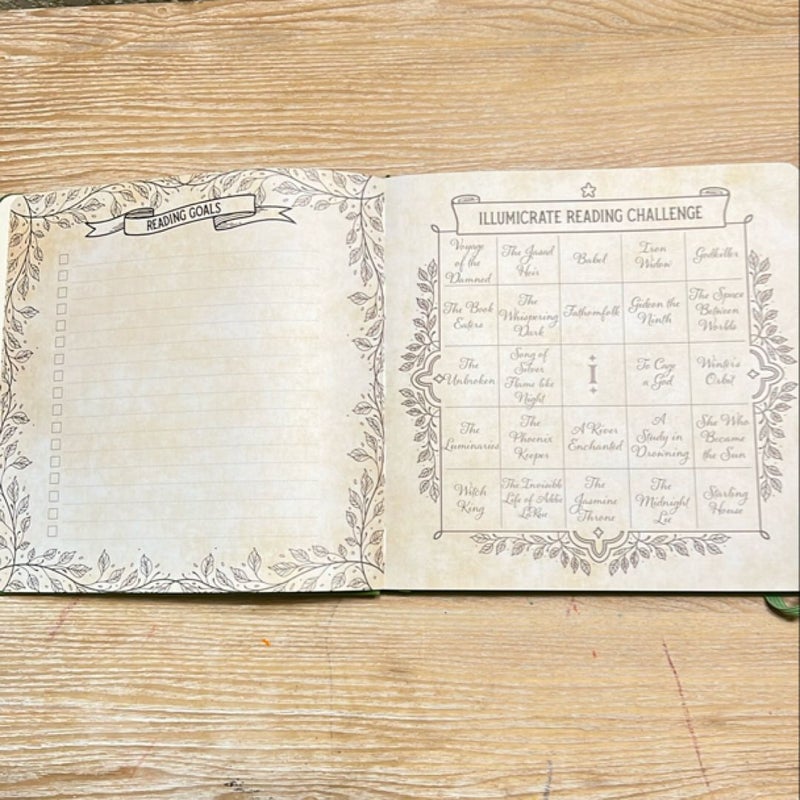 READING GOALS
ILLUMICRATE READING CHALLENGE
Voyage
of the
Damned
The Jasad
Heir
Babel
Iron
Widow
Godkiller
The Book
Eaters
The
Whispering
Dark
Fathomfolk
Gideon the
Ninth
The Space
Between
Worlds
The
Unbroken
Song of
Silver
Flame like
Night
I
To Cage
a God
Winter's
Orbit
The
Luminaries
The
Phoenix
Keeper
A River
Enchanted
A
Study in
Drowning
She Who
Became
the Sun
Witch
King
The Invisible
Life of Addie
LaRue
The
Jasmine
Throne
The
Midnight
Lie
Starling
House